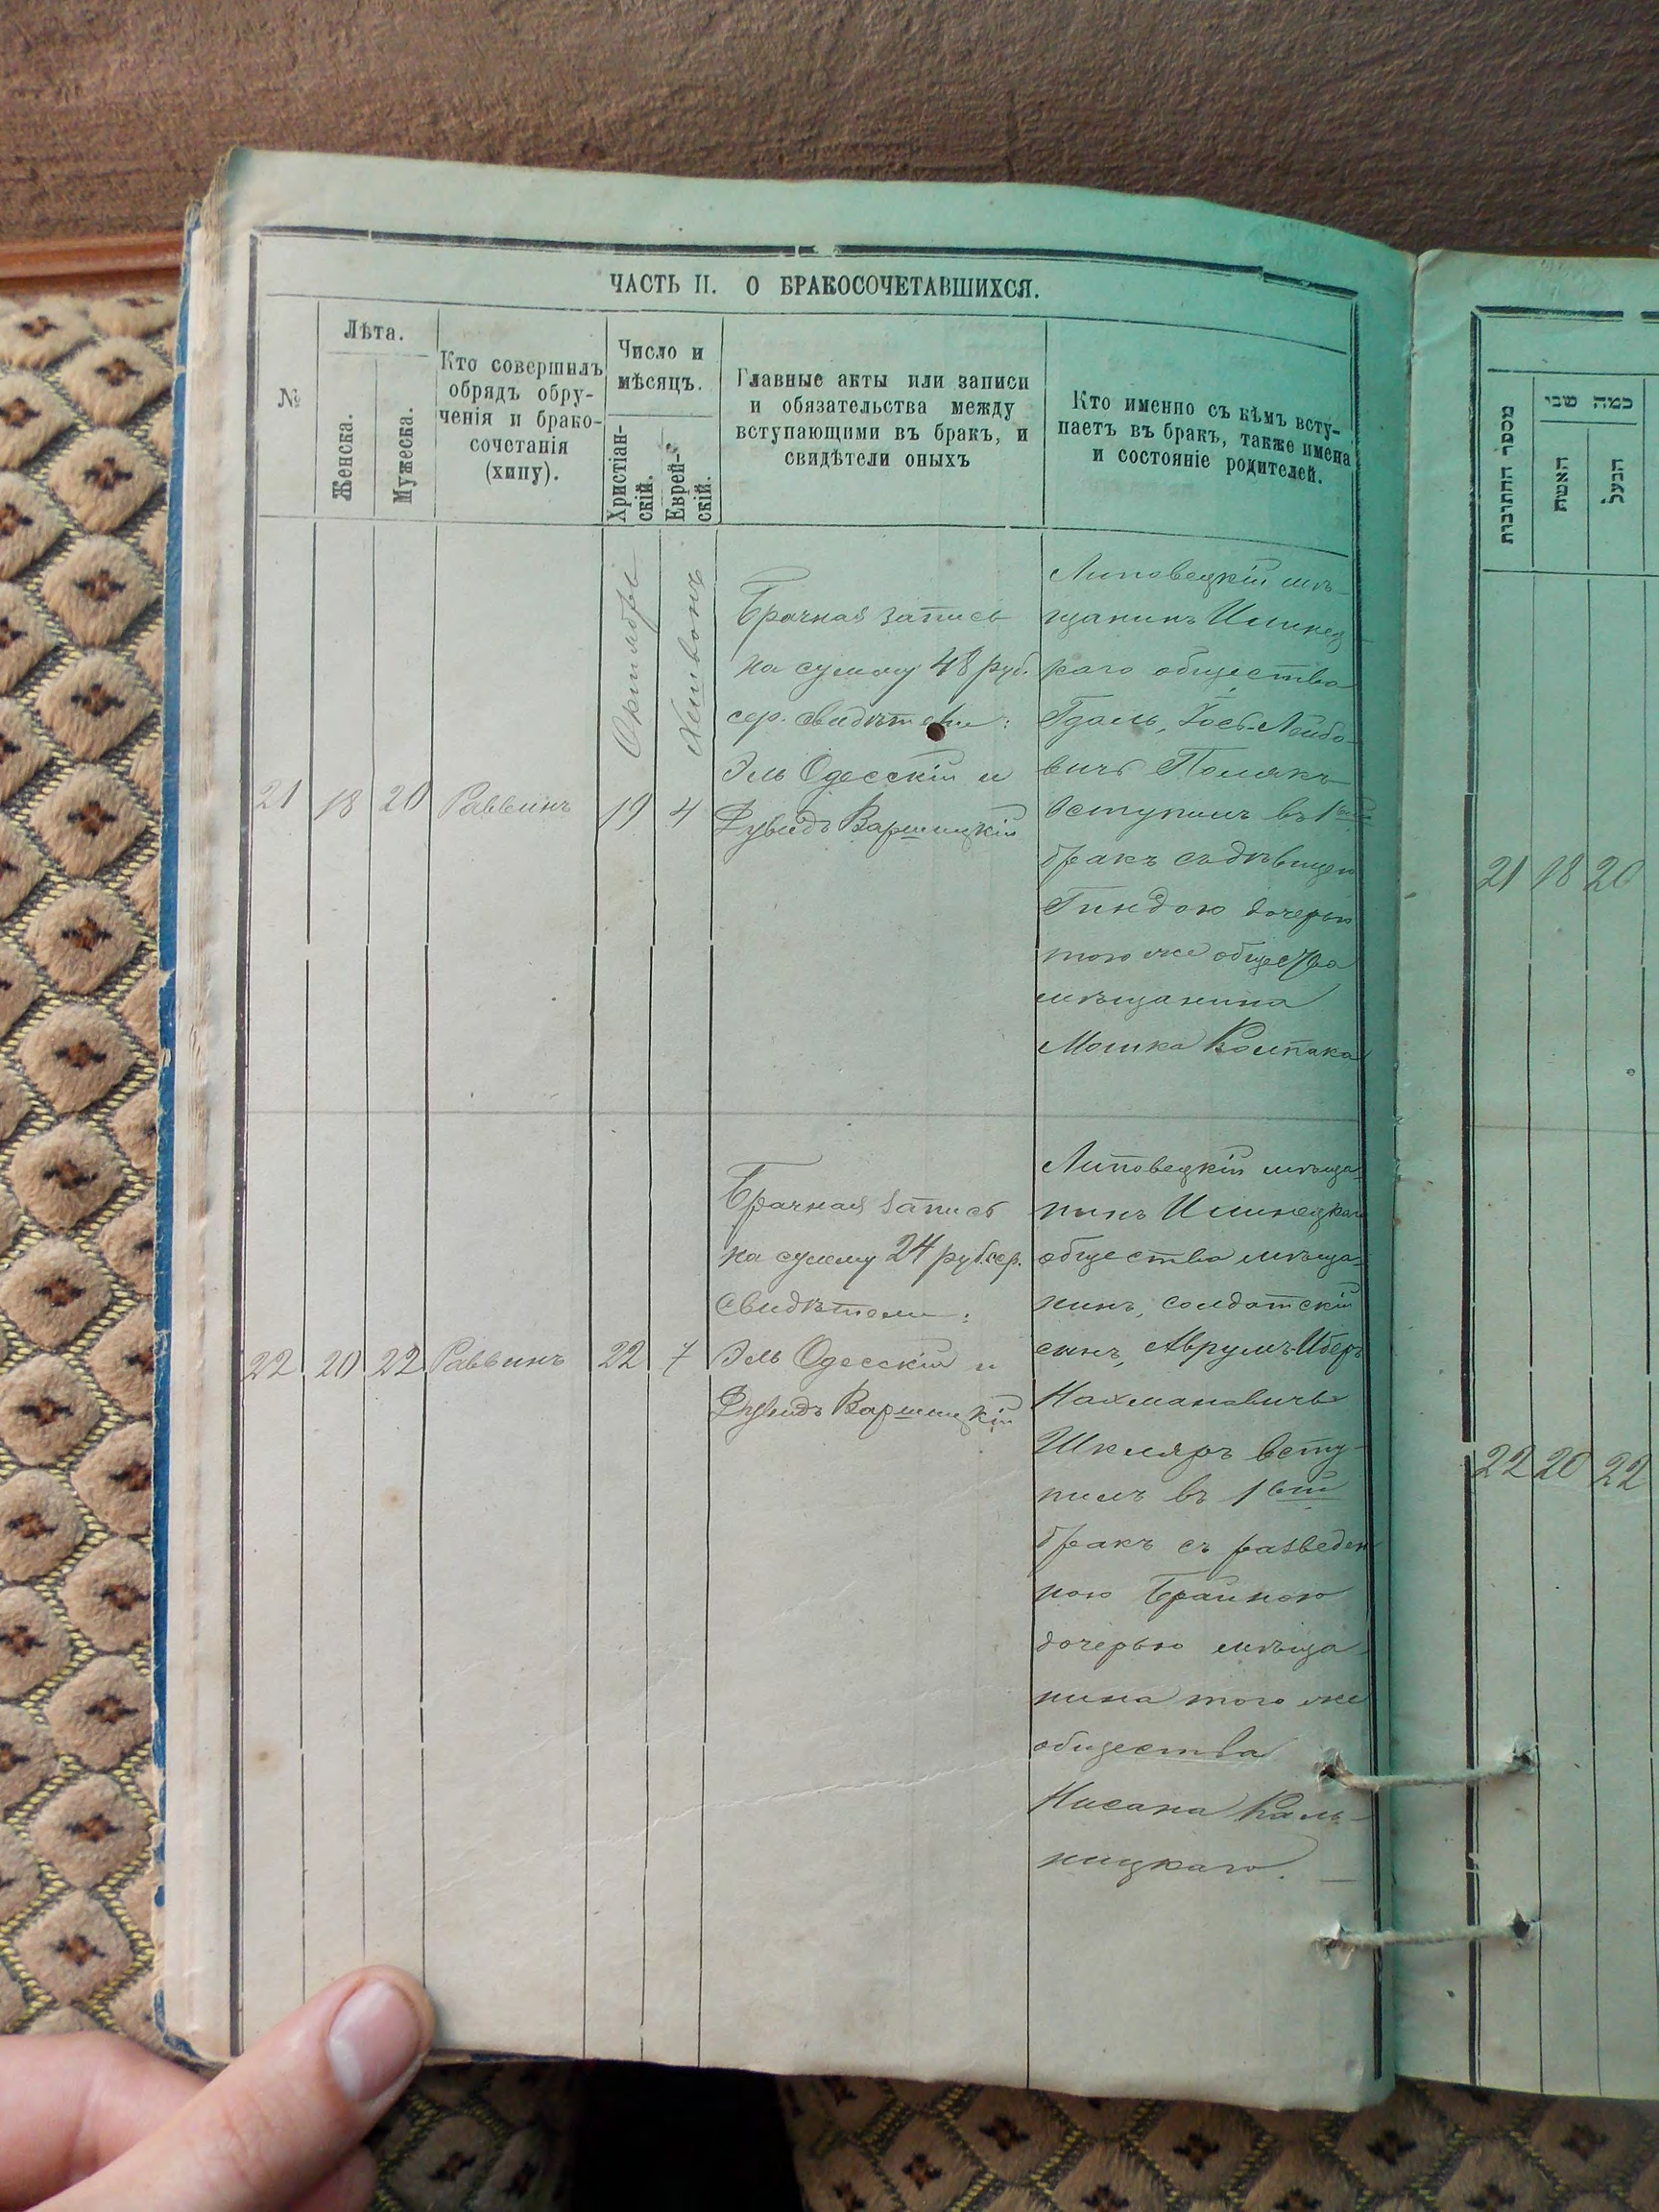 ЧАСТЬ II. О БРАКОСОЧЕТАВШИХСЯ.
№
Лѣта.
Женска.
Мужеска.
Кто совершилъ
обрядъ обру-
ченія и брако-
сочетанія
(хипу).
Число и
мѣсяцъ.
Христіан-
скій.
Еврей-
скій.
Главные акты или записи
и обязательства между
вступающими въ бракъ, и
свидѣтели оныхъ
Кто именно съ кѣмъ всту-
паетъ въ бракъ, также имена
и состояніе родителей.
21
18
20
Раввинъ
Октября
19
Хешвонъ
4
Брачная запись
на сумму 48 руб.
сер. свидѣтели:
Эль Одесскій и
Дувидъ Варшицкій
Липовецкій мѣ-
щанинъ Илинец-
каго общества
Гдаль, Іось-Лейбо-
вичъ Полякъ
вступилъ въ 1вый
бракъ съ дѣвицею
Гиндою дочерью
того же общества
мѣщанина
Мошка Колпака
22
20
22
Раввинъ
22
7
Брачная запись
на сумму 24 руб. сер.
Свидѣтели:
Эль Одесскій и
Дувидъ Варшицкій
Липовецкій мѣща-
нинъ Илинецкаго
общества мѣща-
нинъ, солдатскій
сынъ, Аврумъ-Иберъ
Нахмановичъ
Шкляръ всту-
пилъ въ 1вый
бракъ съ разведен
ною Брайною
дочерью мѣща-
нина того же
общества
Нисана Каль-
ницкаго.
מספר החתונות
כמה שני
האשת
הבעל
21 18 20
22 20 22